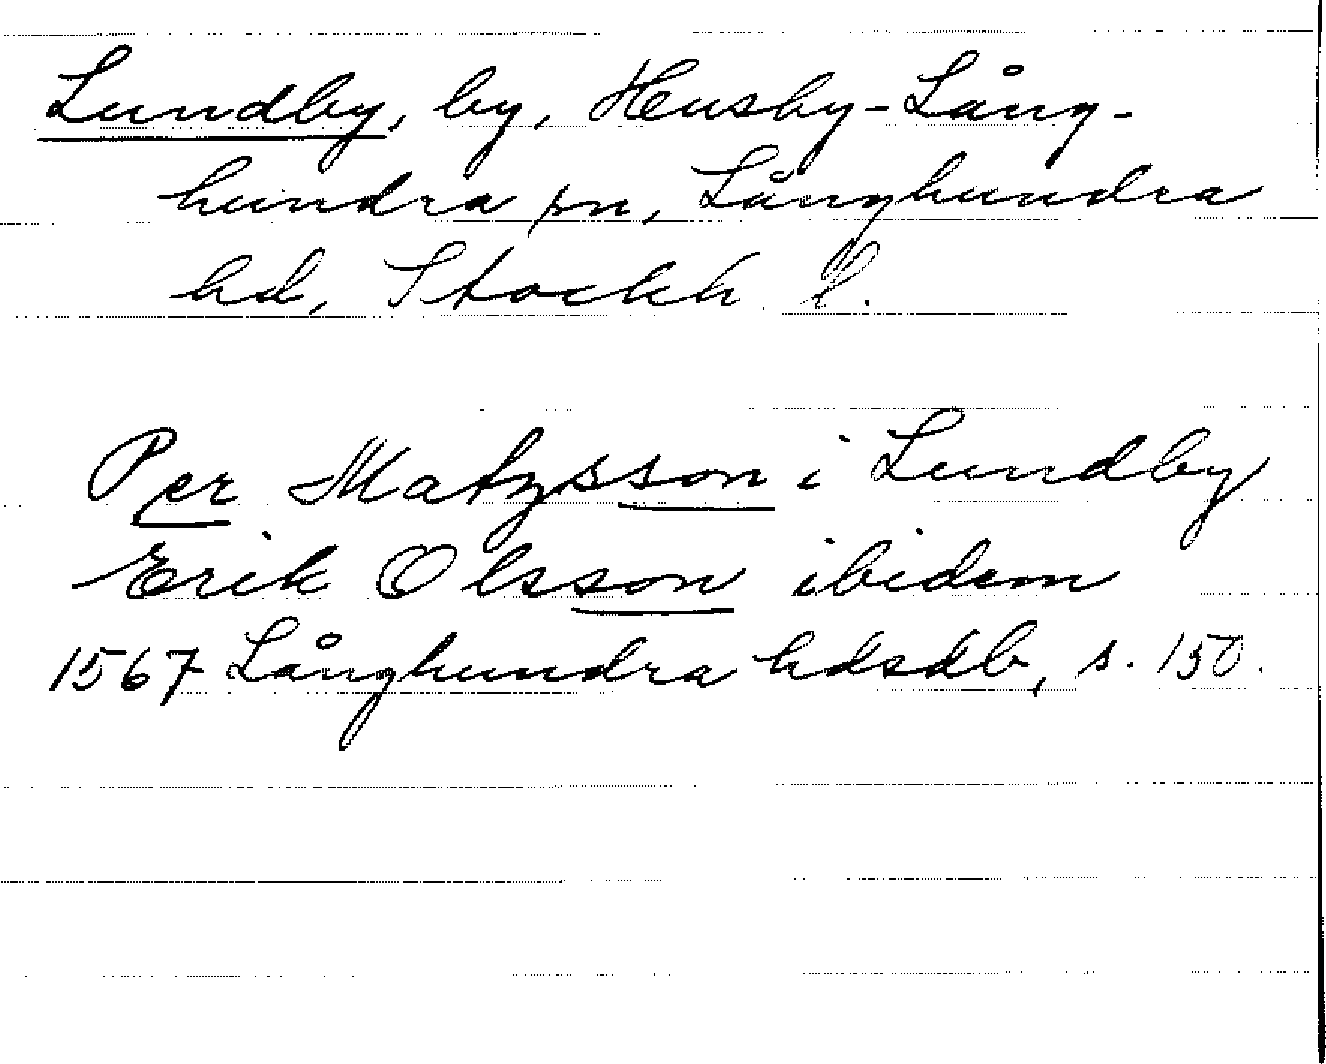 Lundby, by, Husby-Lång-
hundra sn, Långhundra
hd, Stockh l.
Per Matzsson i Lundby
Erik Olsson ibidem
1567 Långhundra hdsdb, s. 150.